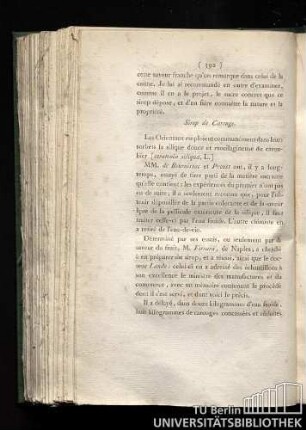 ( 192 )
cette saveur franche qu'on remarque dans celui de la
canne. Je lui ai recommandé en outre d'examiner,
comme il en a le projet, le sucre concret que ce
sirop dépose, et d'en faire connaître la nature et la
propriété.
Sirop de Carouge.
Les Orientaux emploient communément dans leurs
la silique douce et mucilagineuse du carou-
bier [ceratonia siliqua, L.]
MM. de et Proust ont, il y a long-
temps, essayé de tirer parti de la matière sucrée
qu'elle contient : les expériences du premier n'ont pas
eu de suite. Il a seulement reconnu que, pour l'ob-
tenir dépouillée de la partie colorante et de la saveur
que la pellicule contient de la silique, il faut
traiter celle-ci par l'eau froide. L'autre chimiste en
a retiré de l'eau-de-vie.
Déterminé par ces essais, ou seulement par la
saveur du fruit, M. de Naples, a cherché
à en préparer un sirop, et a réussi, ainsi que le doc-
teur : celui-ci en a adressé des échantillons à
son excellence le ministre des manufactures et du
commerce, avec un mémoire contenant le procédé
dont il s'est servi, et dont voici le précis.
Il a délayé, dans douze kilogrammes d'eau froide,
huit kilogrammes de carouges concassées et réduites
TU Berlin
UNIVERSITÄTSBIBLIOTHEK